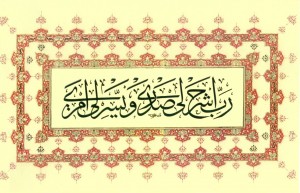 رَبِّ اشْرَحْ لِي صَدْرِي وَيَسِّرْ لِي أَمْرِي